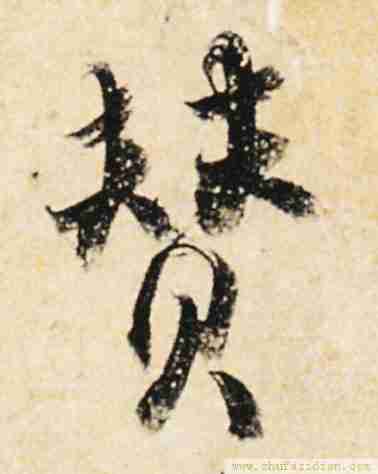 赞
www.shufazidian.com